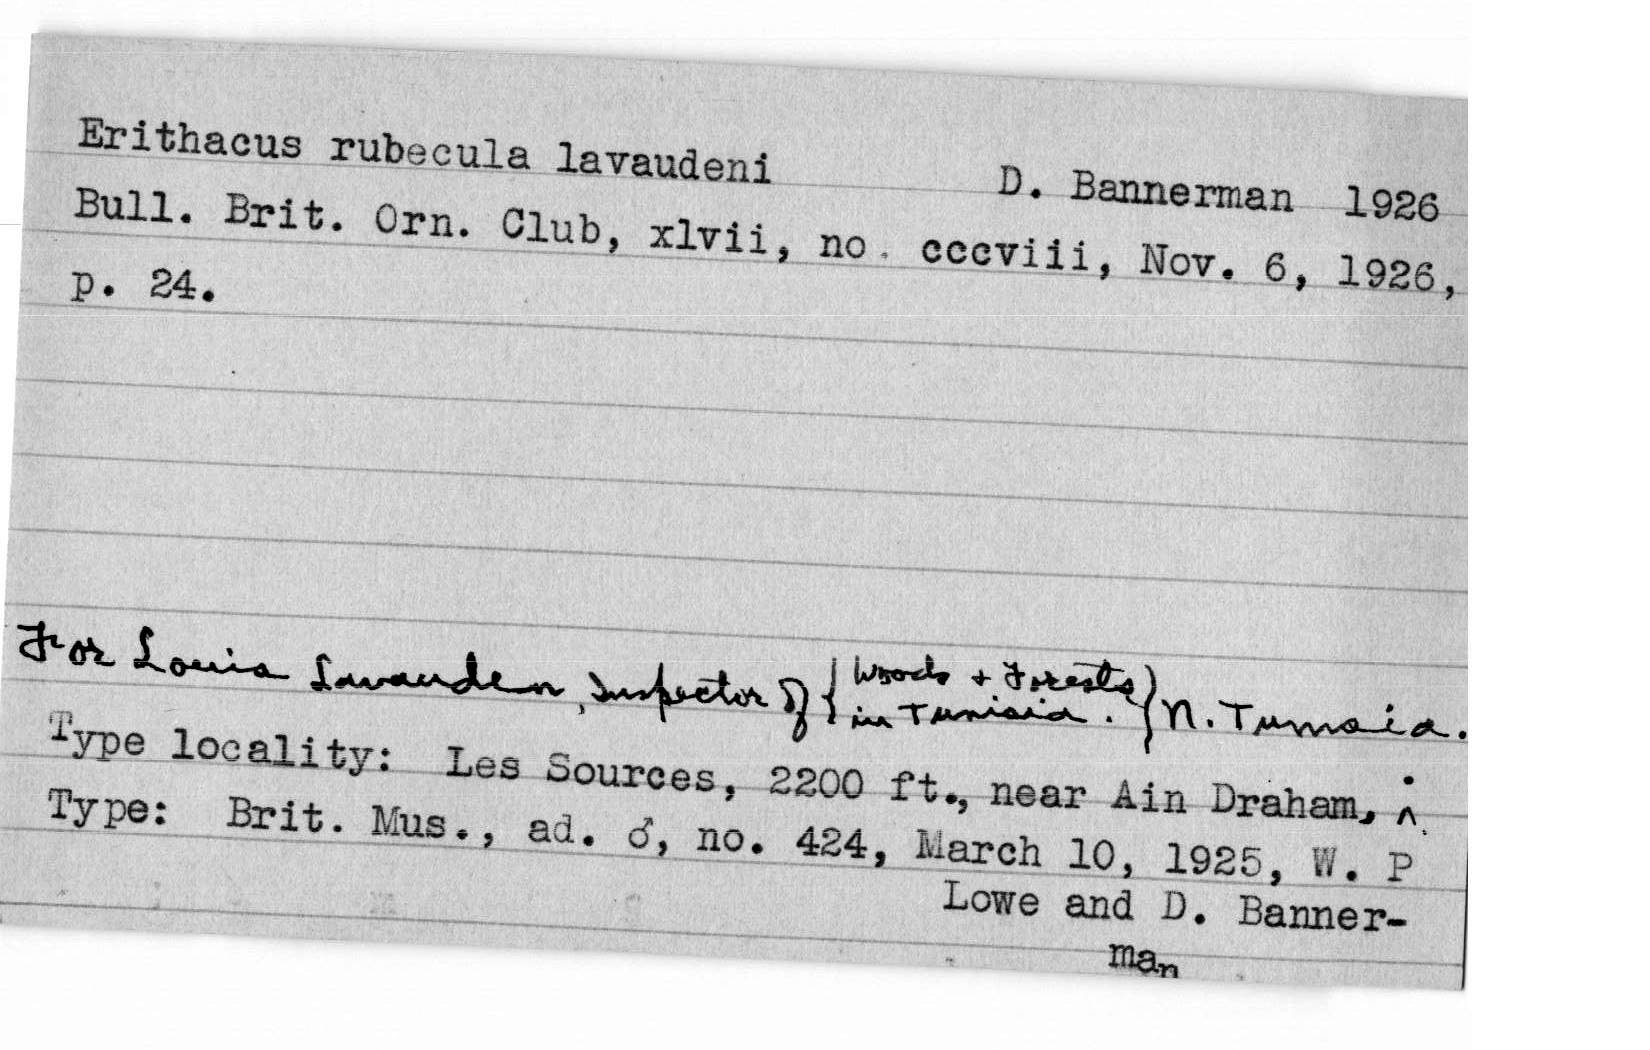 Erithacus rubecula lavaudeni D. Bannerman 1926
Bull. Brit. Orn. Club, xlvii, no. cccviii, Nov. 6, 1926,
p. 24.
For Louis Lavauden, Inspector of { Woods + Forests
in Tunisia. } N. Tunisia.
Type locality: Les Sources, 2200 ft., near Ain Draham, ^
Type: Brit. Mus., ad. ♂, no. 424, March 10, 1925, W. P
Lowe and D. Banner-
man